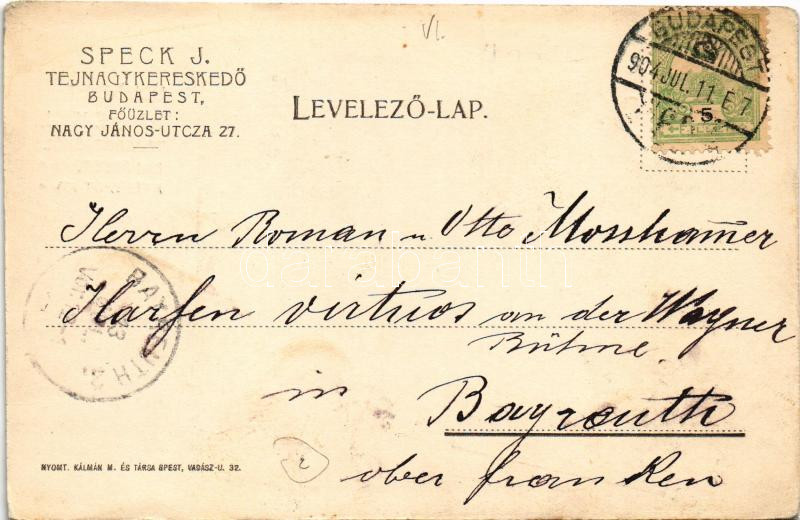 SPECK J.
TEJNAGYKERESKEDŐ
BUDAPEST,
FŐÜZLET:
NAGY JÁNOS-UTCZA 27.
LEVELEZŐ-LAP.
VI.
BUDAPEST
904 JUL. 11 E 7
5
Herrn Roman u Otto Mossham̄er
Harfen virtuos an der Wagner
Bühne.
in Bayreuth
ober franken
BAYREUTH 2.
darabanth
NYOMT. KÁLMÁN M. ÉS TÁRSA BPEST, VADÁSZ-U. 32.
2